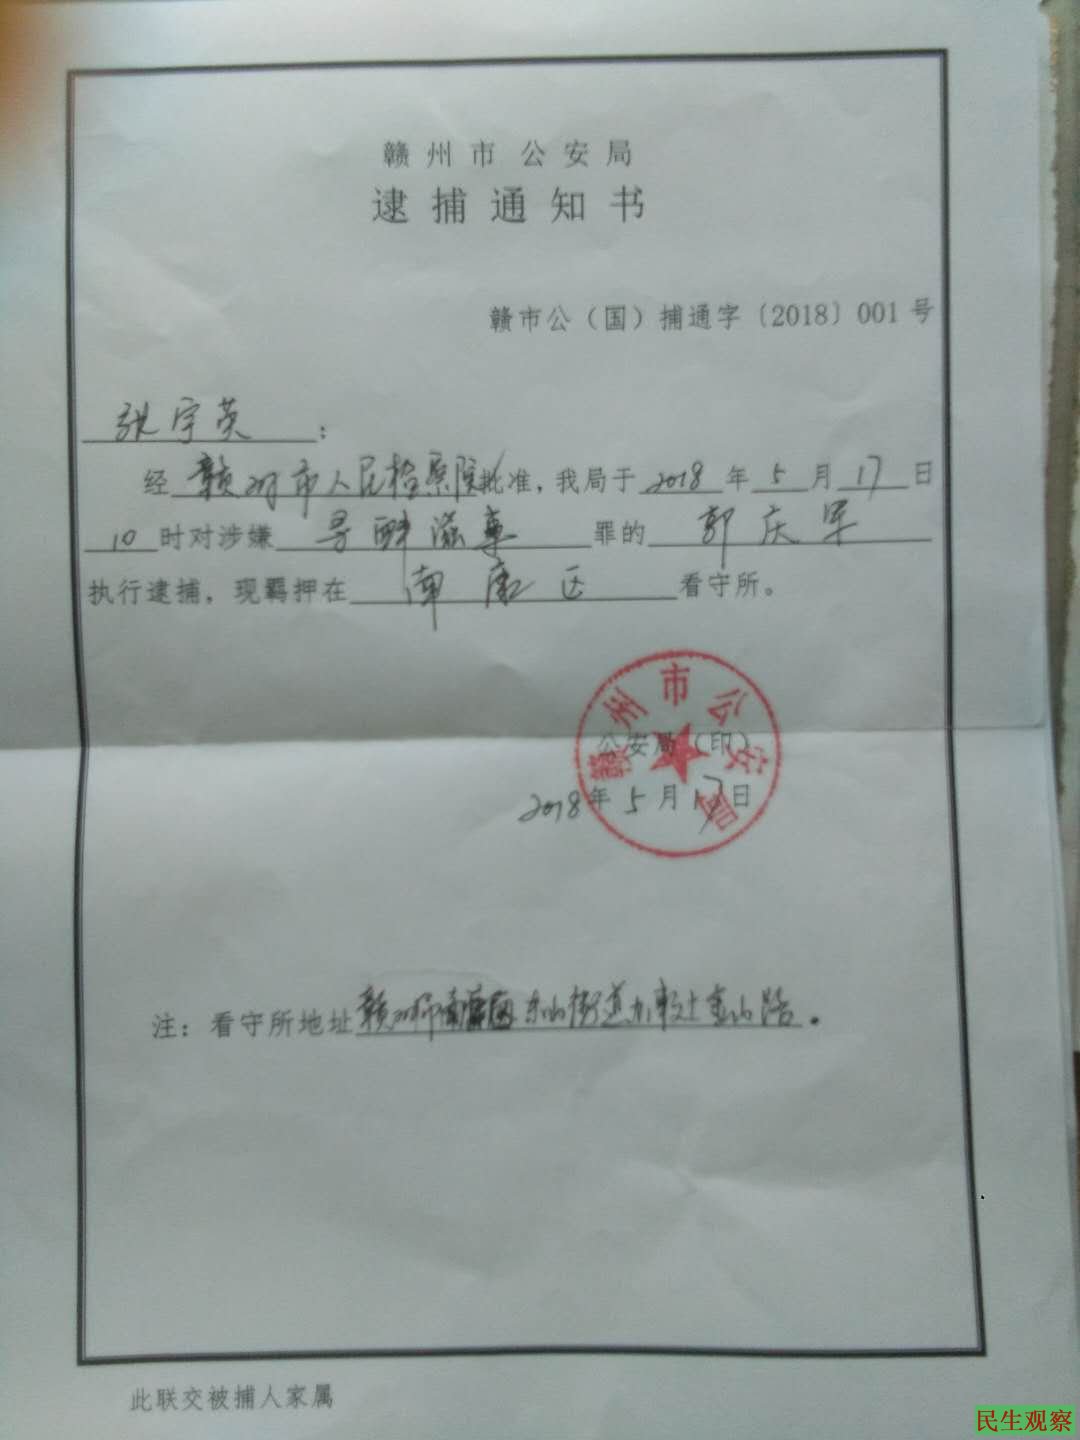 赣州市公安局
逮捕通知书
赣市公（国）捕通字〔2018〕001号
张宇英：
经赣州市人民检察院批准，我局于2018年5月17日
10时对涉嫌寻衅滋事罪的郭庆军
执行逮捕，现羁押在南康区看守所。
赣州市公安局
公安局（印）
2018年5月17日
注：看守所地址赣州市南康区东山街道办事处金山路。
此联交被捕人家属
民生观察